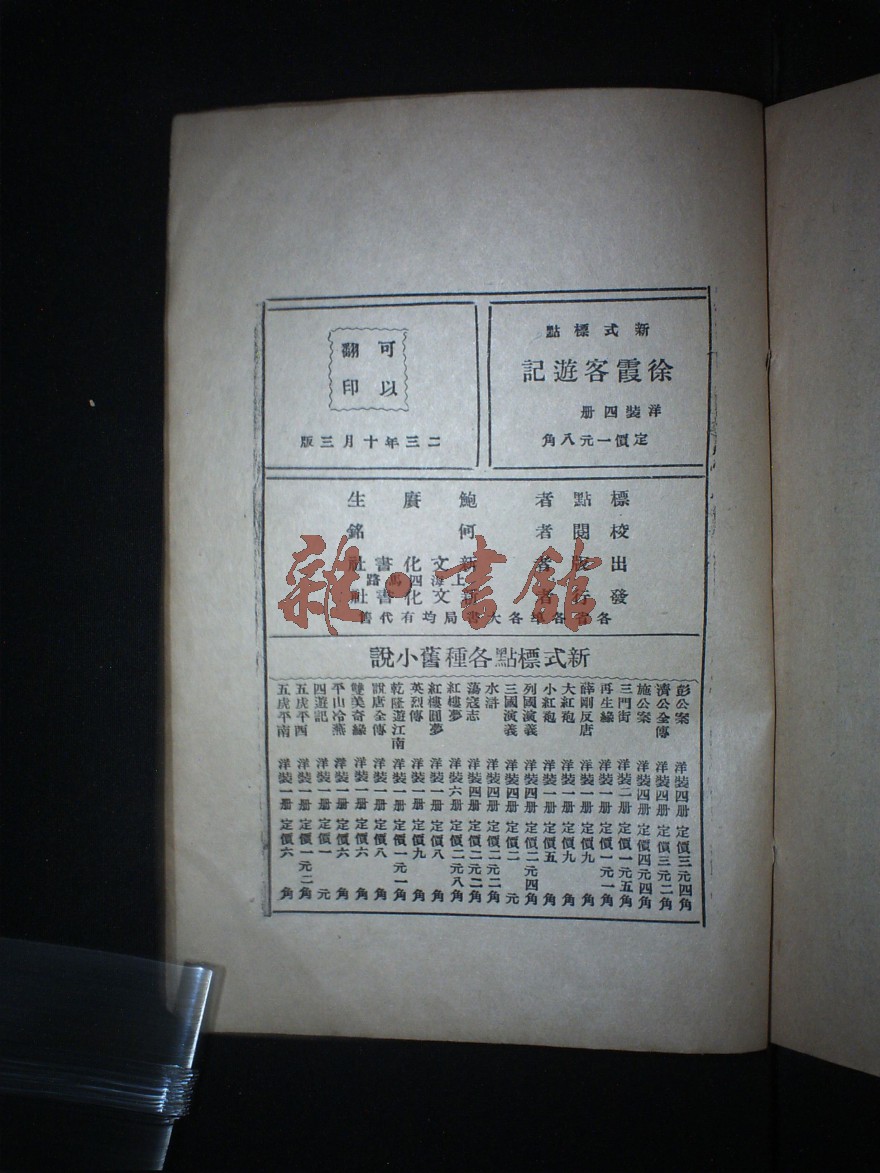 新式標點
徐霞客遊記
洋裝四册
定價一元八角
可以
翻印
二三年十月三版
標點者 鮑賡生
校閱者 何銘
出版者 新文化書社
上海四馬路
發行者 新文化書社
各省各埠各大書局均有代售
新式標點各種舊小說
彭公案 洋裝四册 定價三元四角
濟公全傳 洋裝四册 定價三元二角
施公案 洋裝四册 定價四元四角
三門街 洋裝二册 定價一元五角
再生緣 洋裝一册 定價一元一角
薛剛反唐 洋裝一册 定價九角
大紅袍 洋裝一册 定價九角
小紅袍 洋裝一册 定價五角
列國演義 洋裝四册 定價二元四角
三國演義 洋裝四册 定價二元
水滸 洋裝四册 定價二元二角
蕩寇志 洋裝四册 定價二元二角
紅樓夢 洋裝六册 定價二元八角
紅樓圓夢 洋裝一册 定價八角
英烈傳 洋裝一册 定價九角
乾隆遊江南 洋裝一册 定價一元一角
說唐全傳 洋裝一册 定價八角
雙美奇緣 洋裝一册 定價六角
平山冷燕 洋裝一册 定價六角
四遊記 洋裝一册 定價一元
五虎平西 洋裝一册 定價一元二角
五虎平南 洋裝一册 定價六角
雜·書館